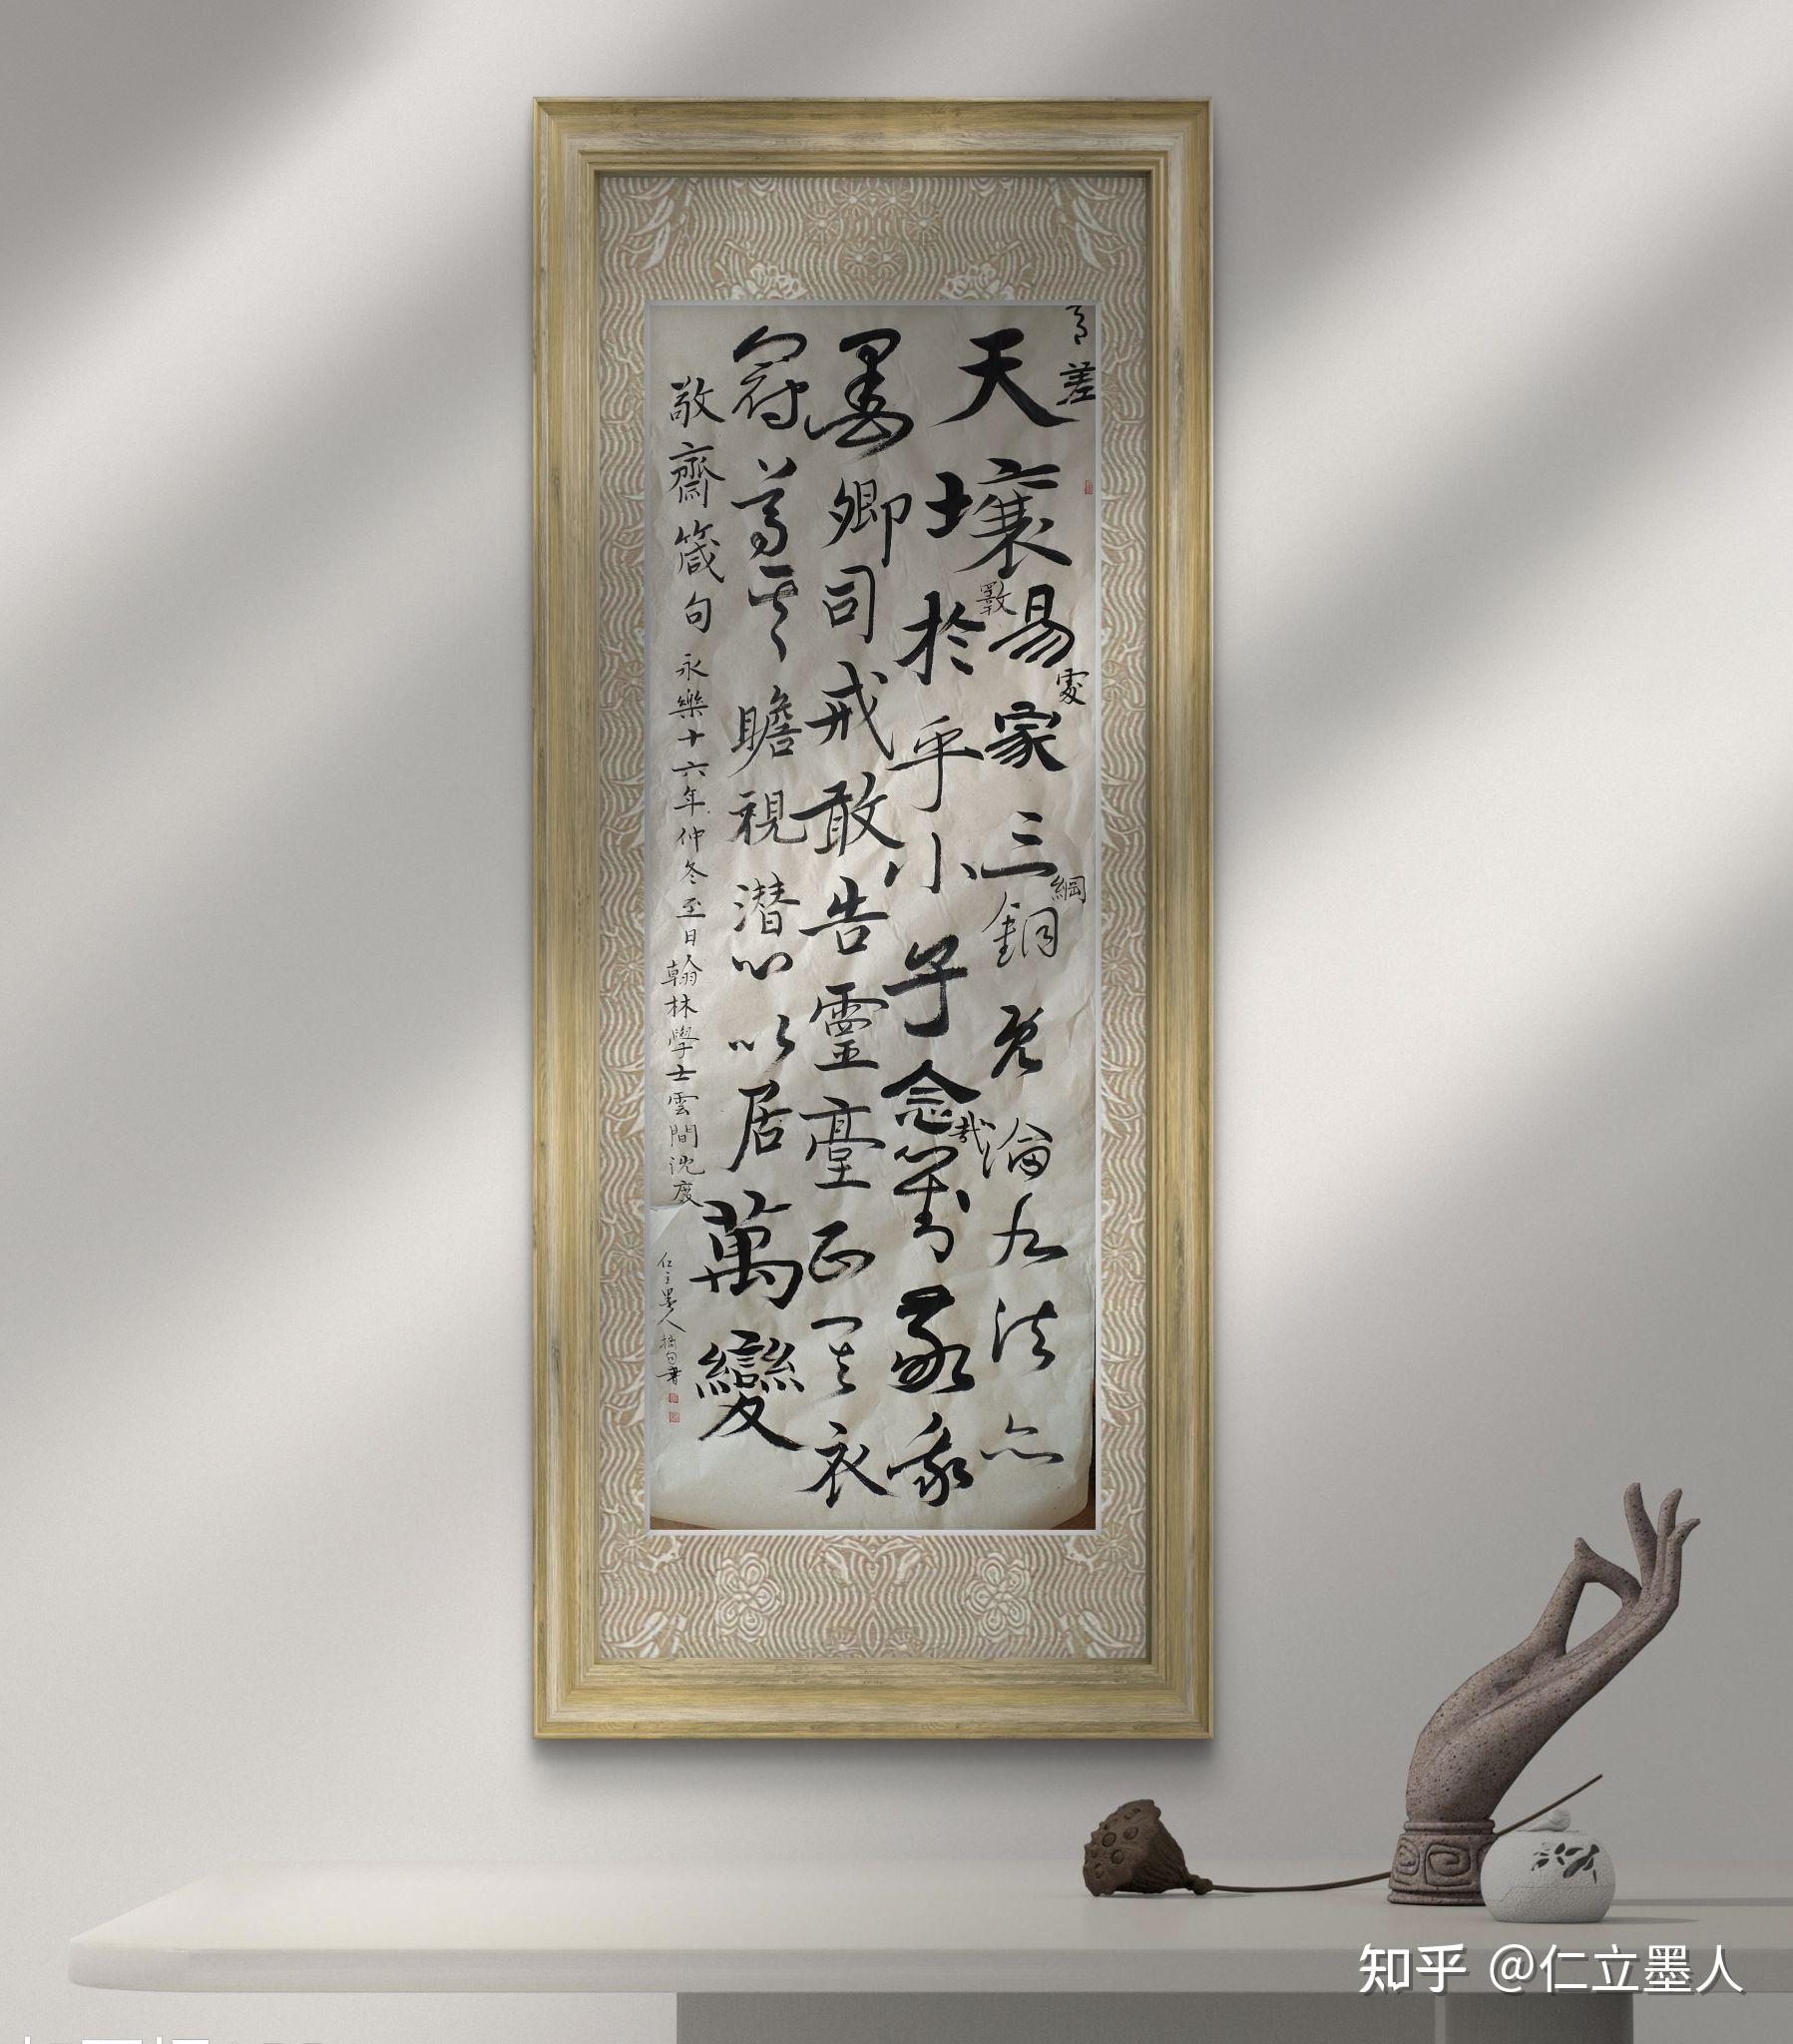 有差
天壤易家三銅既淪九法亦
處
綱
斁
於乎小子念
哉
墨卿司戒敢告靈臺正其衣
冠尊其瞻視潜心以居萬變
敬齋箴句 永樂十六年仲冬至日翰林學士雲間沈度
仁立墨人摘句書
知乎 @仁立墨人